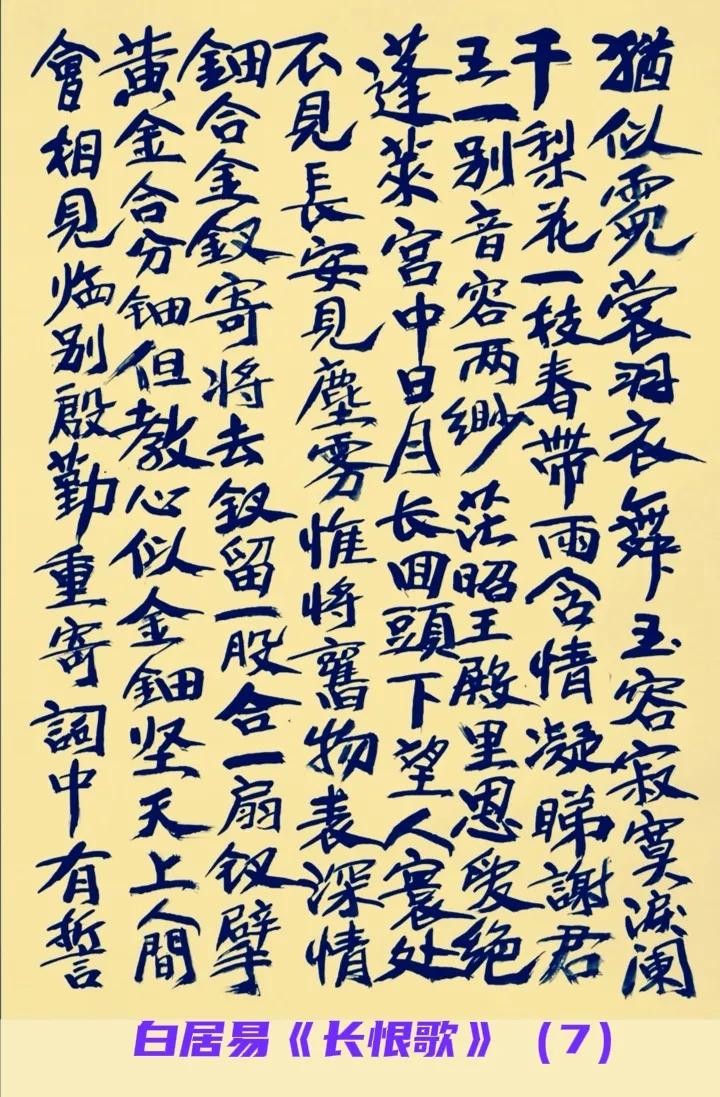 猶似霓裳羽衣舞玉容寂寞淚闌
干梨花一枝春帶雨含情凝睇謝君
王一别音容两缈茫昭王殿里恩爱绝
蓬萊宫中日月长回頭下望人寰处
不見長安見塵雾惟将舊物表深情
鈿合金釵寄将去釵留一股合一扇釵擘
黄金合分钿但教心似金鈿坚天上人間
會相見临别殷勤重寄詞中有誓
白居易《长恨歌》（7）